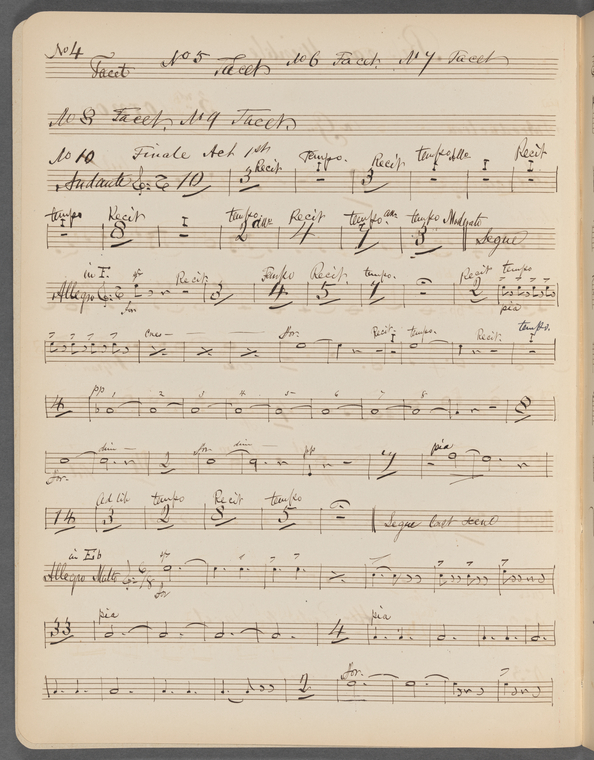 No 4 Tacet No 5 Tacet No 6 Tacet No 7 Tacet
No 8 Tacet, No 9 Tacet
No 10 Finale Act 1st
Recit Tempo. Recit tempo Recit
Andante 10 3 1 3 1 1 1
tempo Recit 1 tempo Recit tempo tempo Moderato
1 8 2 4 1 3 Segue
in F. Recit: Tempo Recit. tempo. Recit tempo
Allegro for 3 4 5 1 2 pia
cres for. Recit: tempo. Recit: tempo.
1
pp 1 2 3 4 5 6 7 8
4 8
dim for dim pp pia
for. 2 7
Ad lib tempo Recit tempo
14 3 2 8 5 Segue last scene
in Eb
Allegro Molto 6/8 for
pia pia
33 4
for.
2